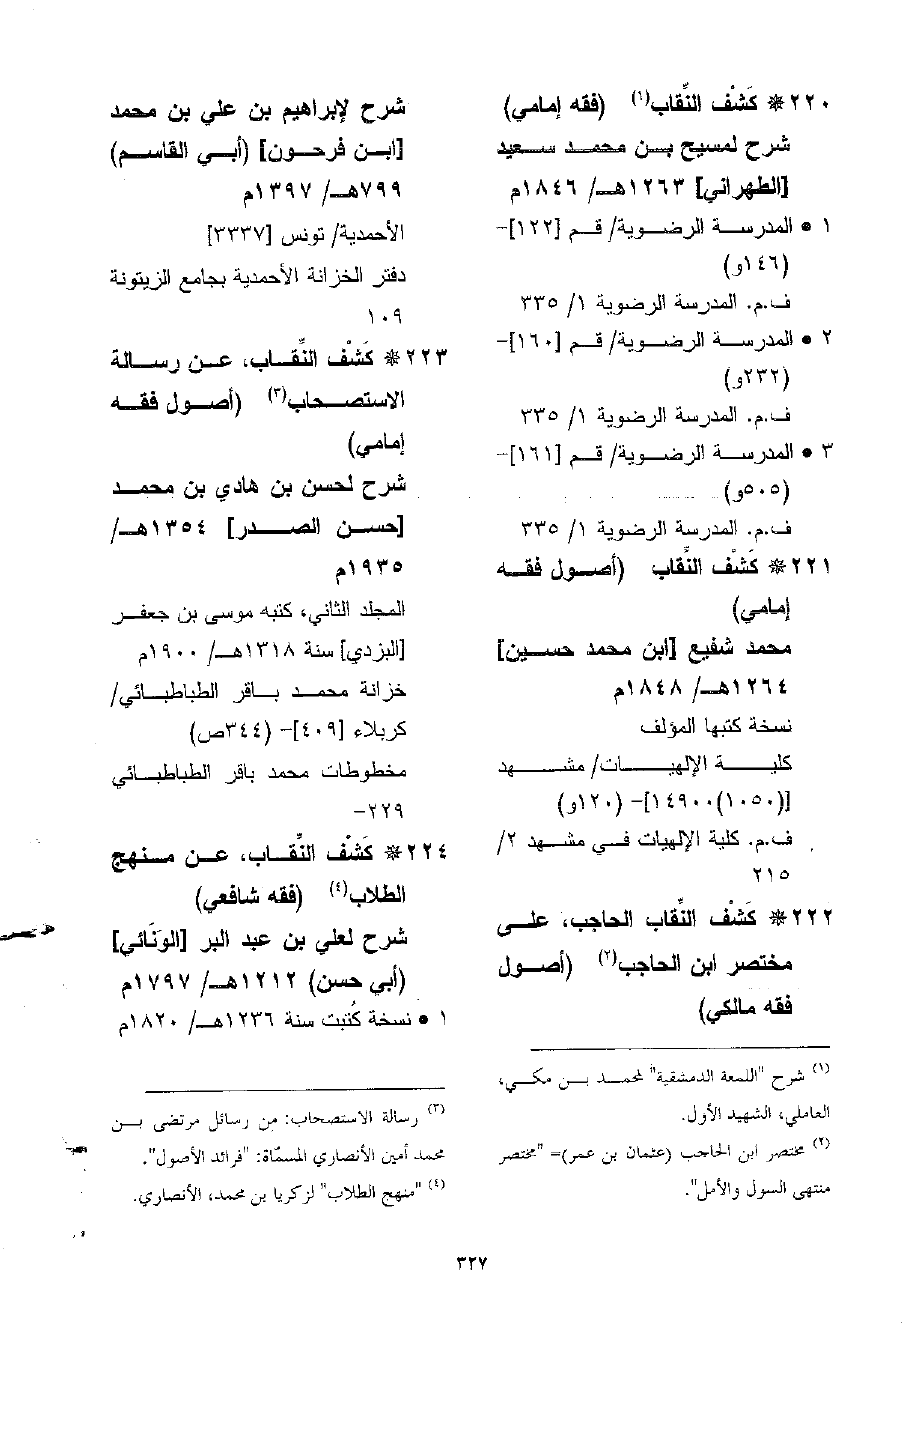 ٢٢٠ * كَشْف النِّقاب(١) (فقه إمامي)
شرح لمسيح بن محمد سعيد
[الطهراني] ١٢٦٣هـ/ ١٨٤٦م
١ • المدرسة الرضوية/ قم [١٢٢]-
(١٤٦و)
ف.م. المدرسة الرضوية ١/ ٣٣٥
٢ • المدرسة الرضوية/ قم [١٦٠]-
(٢٣٢و)
ف.م. المدرسة الرضوية ١/ ٣٣٥
٣ • المدرسة الرضوية/ قم [١٦١]-
(٥٠٥و)
ف.م. المدرسة الرضوية ١/ ٣٣٥
٢٢١ * كَشْف النِّقاب (أصول فقه
إمامي)
محمد شفيع [ابن محمد حسين]
١٢٦٤هـ/ ١٨٤٨م
نسخة كتبها المؤلف
كلية الإلهيات/ مشهد
[(١٠٥٠)١٤٩٠٠]- (١٢٠و)
ف.م. كلية الإلهيات في مشهد ٢/
٢١٥
٢٢٢ * كَشْف النِّقاب الحاجب، على
مختصر ابن الحاجب(٢) (أصول
فقه مالكي)
(١) شرح "اللمعة الدمشقية" لمحمد بن مكي،
العاملي، الشهيد الأول.
(٢) مختصر ابن الحاجب (عثمان بن عمر)= "مختصر
منتهى السول والأمل".
شرح لإبراهيم بن علي بن محمد
[ابن فرحون] (أبي القاسم)
٧٩٩هـ/ ١٣٩٧م
الأحمدية/ تونس [٣٣٣٧]
دفتر الخزانة الأحمدية بجامع الزيتونة
١٠٩
٢٢٣ * كَشْف النِّقاب، عن رسالة
الاستصحاب(٣) (أصول فقه
إمامي)
شرح لحسن بن هادي بن محمد
[حسن الصدر] ١٣٥٤هـ/
١٩٣٥م
المجلد الثاني، كتبه موسى بن جعفر
[اليزدي] سنة ١٣١٨هـ/ ١٩٠٠م
خزانة محمد باقر الطباطبائي/
كربلاء [٤٠٩]- (٣٤٤ص)
مخطوطات محمد باقر الطباطبائي
٢٢٩-
٢٢٤ * كَشْف النِّقاب، عن منهج
الطلاب(٤) (فقه شافعي)
شرح لعلي بن عبد البر [الونَائي]
(أبي حسن) ١٢١٢هـ/ ١٧٩٧م
١ • نسخة كُتبت سنة ١٢٣٦هـ/ ١٨٢٠م
(٣) رسالة الاستصحاب: من رسائل مرتضى بن
محمد أمين الأنصاري المسمّاة: "فرائد الأصول".
(٤) "منهج الطلاب" لزكريا بن محمد، الأنصاري.
٣٢٧